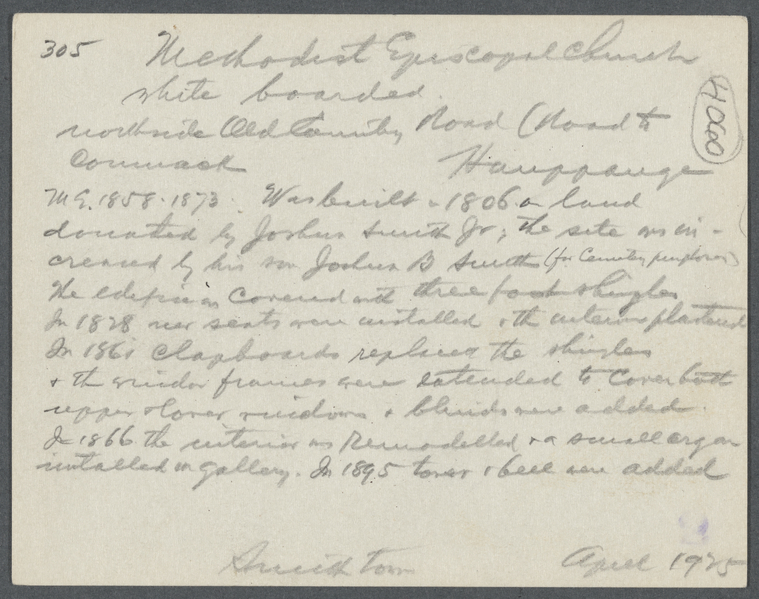 305 Methodist Episcopal Church
4060
white boarded.
northside Old Country Road (Road to
Commack Hauppauge
M.E. 1858-1873. Was built - 1806 on land
donated by Joshua Smith Jr; the site was in-
creased by his son Joshua B Smith (for Cemetery purposes)
The edifice was Covered with three foot shingles
In 1828 new seats were installed & the interior plastered
In 186 Clapboards replaced the shingles
& the window frames were extended to Cover both
upper & lower windows & blinds were added.
In 1866 the interior was Remodelled & a small organ
installed in gallery. In 1895 tower & bell were added
Smithtown April 1925